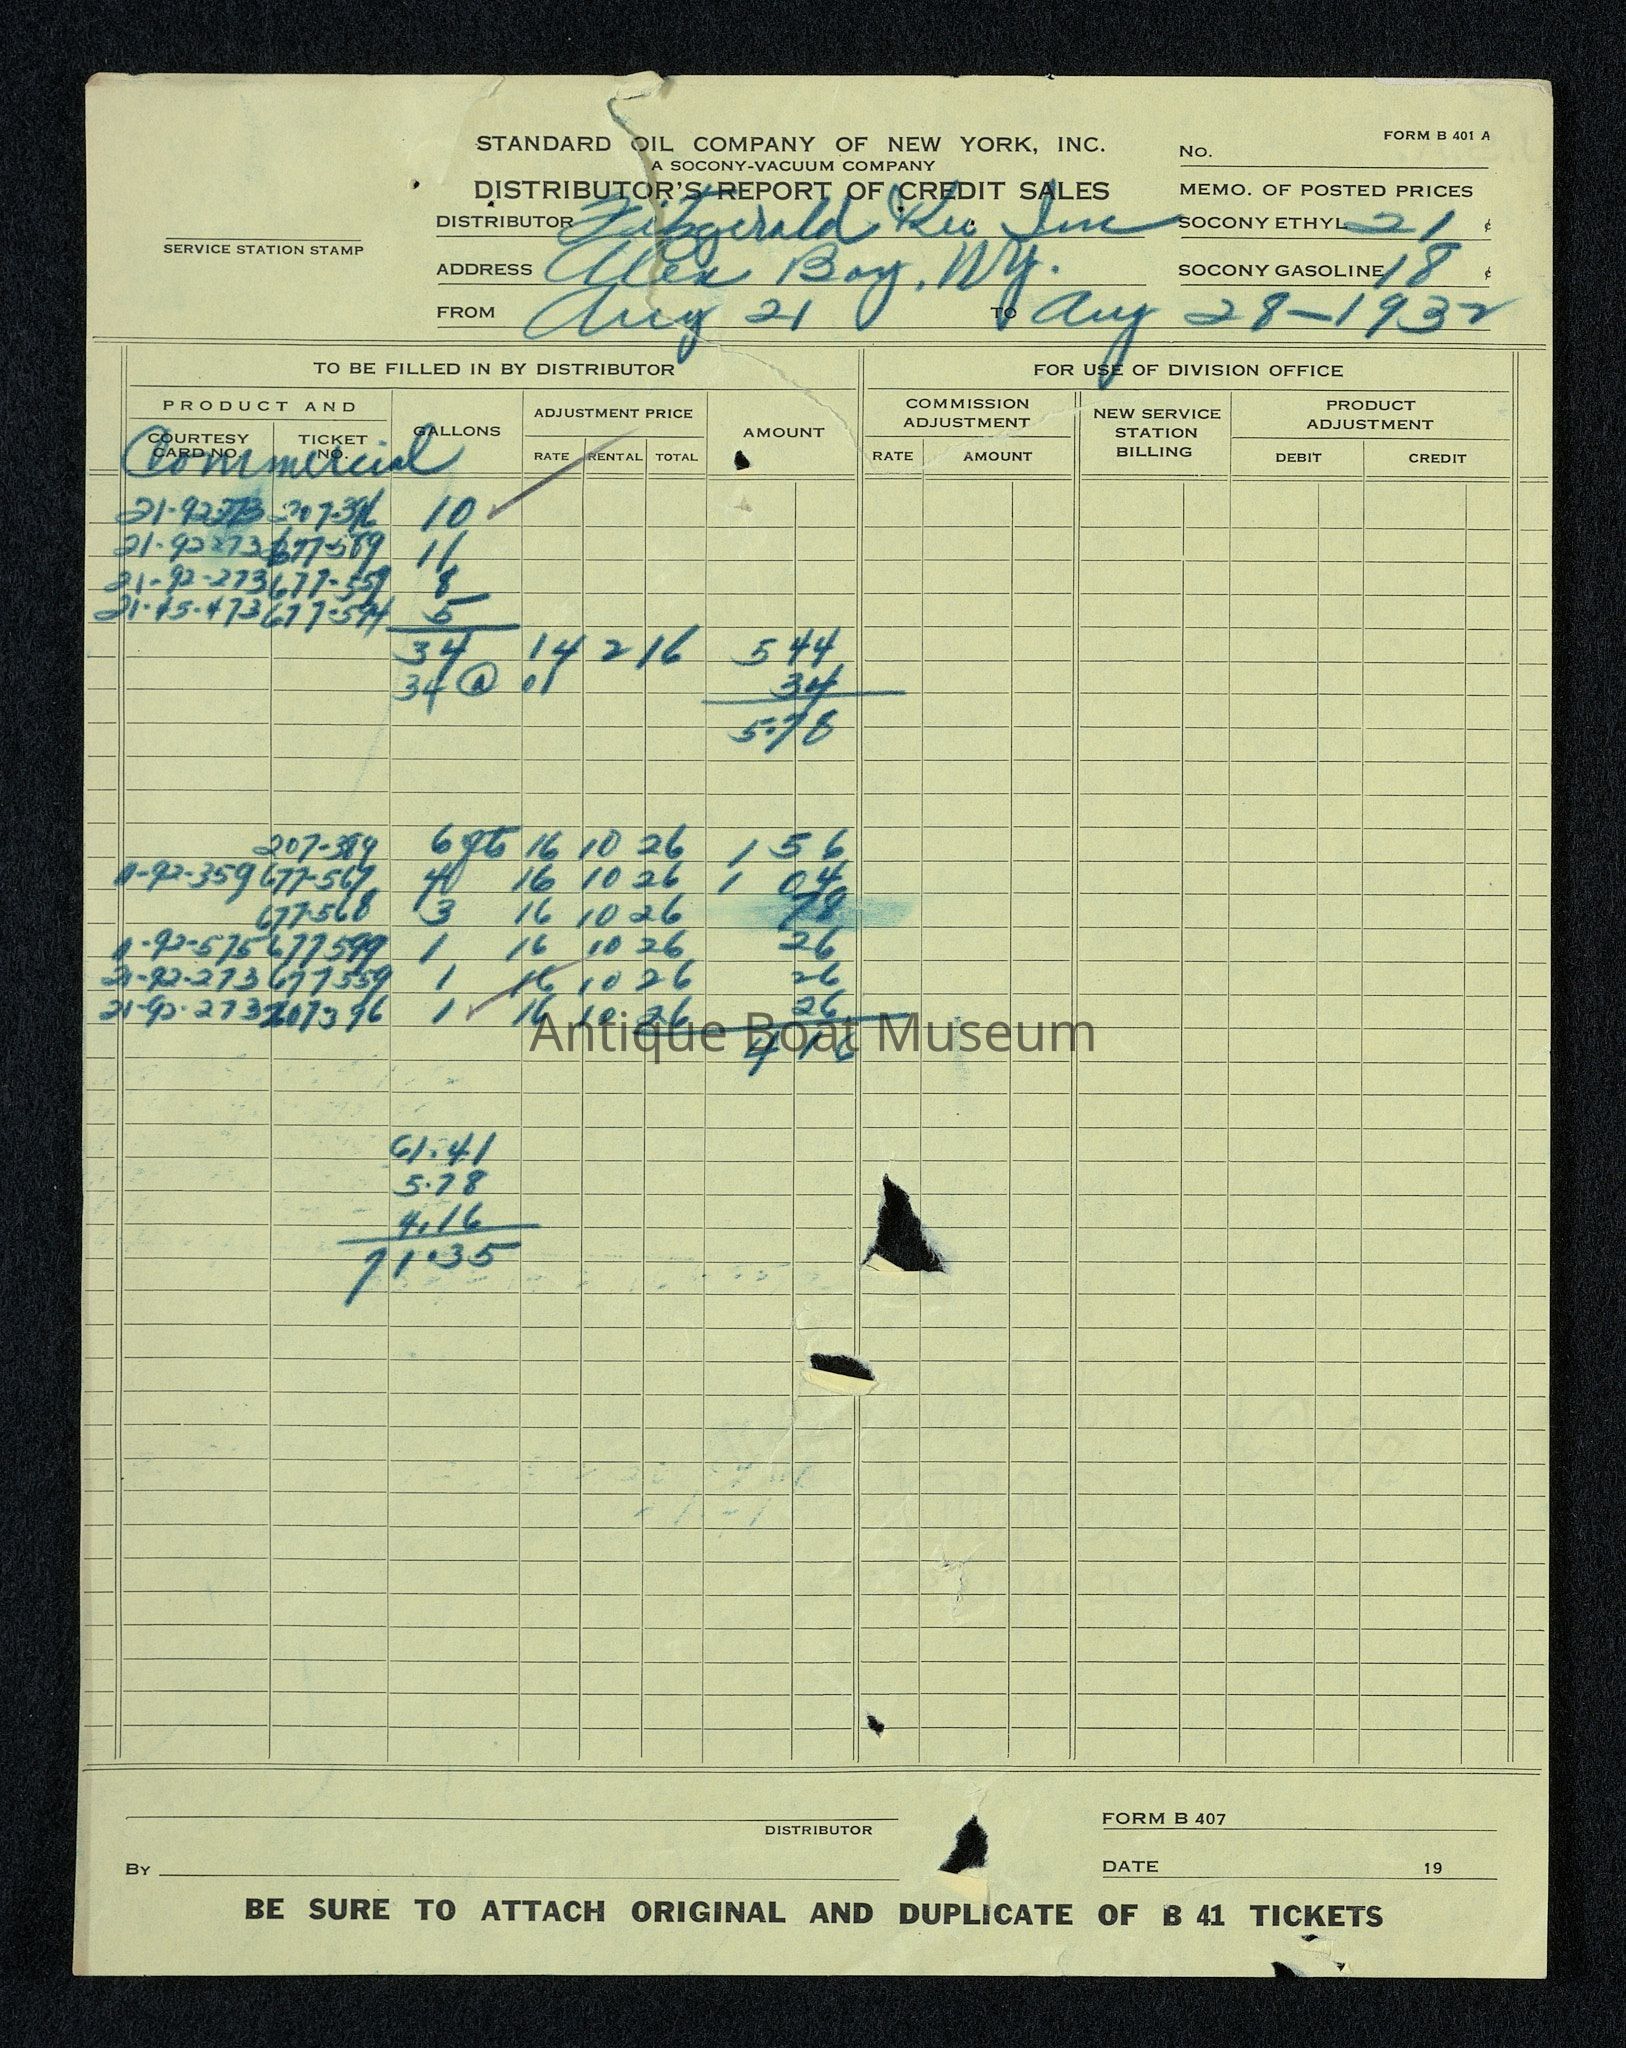 FORM B 401 A
STANDARD OIL COMPANY OF NEW YORK, INC.
A SOCONY-VACUUM COMPANY
DISTRIBUTOR'S REPORT OF CREDIT SALES
No.
MEMO. OF POSTED PRICES
SERVICE STATION STAMP
DISTRIBUTOR Fitzgerald Inc
SOCONY ETHYL 21 ¢
ADDRESS Alex Bay, N.Y.
SOCONY GASOLINE 18 ¢
FROM Aug 21 TO Aug 28-1932
TO BE FILLED IN BY DISTRIBUTOR FOR USE OF DIVISION OFFICE
PRODUCT AND
COURTESY CARD NO. TICKET NO.
GALLONS
ADJUSTMENT PRICE
RATE RENTAL TOTAL
AMOUNT
COMMISSION ADJUSTMENT
RATE AMOUNT
NEW SERVICE STATION BILLING
PRODUCT ADJUSTMENT
DEBIT CREDIT
Commercial
21-92273 207-396 10
21-92273 677-589 11
21-92-273 677-559 8
21-45-473 677-594 5
34 14 2 16 5 44
34 @ 01 34
5.78
207-389 6 qts 16 10 26 1 56
11-92-359 677-567 4 16 10 26 1 04
677-568 3 16 10 26 78
11-92-575 677599 1 16 10 26 26
21-92-273 677559 1 16 10 26 26
21-92-273 207396 1 16 10 26 26
4 16
Antique Boat Museum
61.41
5.78
4.16
71.35
DISTRIBUTOR
FORM B 407
BY
DATE 19
BE SURE TO ATTACH ORIGINAL AND DUPLICATE OF B 41 TICKETS